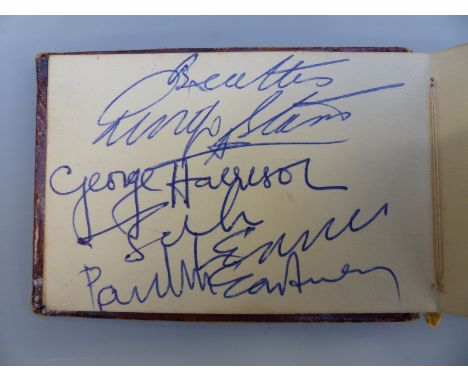 Beatles
Ringo Starr
George Harrison
John Lennon
Paul McCartney